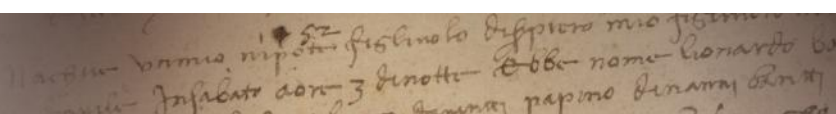 52
nacque un mio nipote figliuolo di ser piero mio figliuolo
aprile in sabato a ore 3 di notte Ebbe nome lionardo
di nanni papino di nanni banti